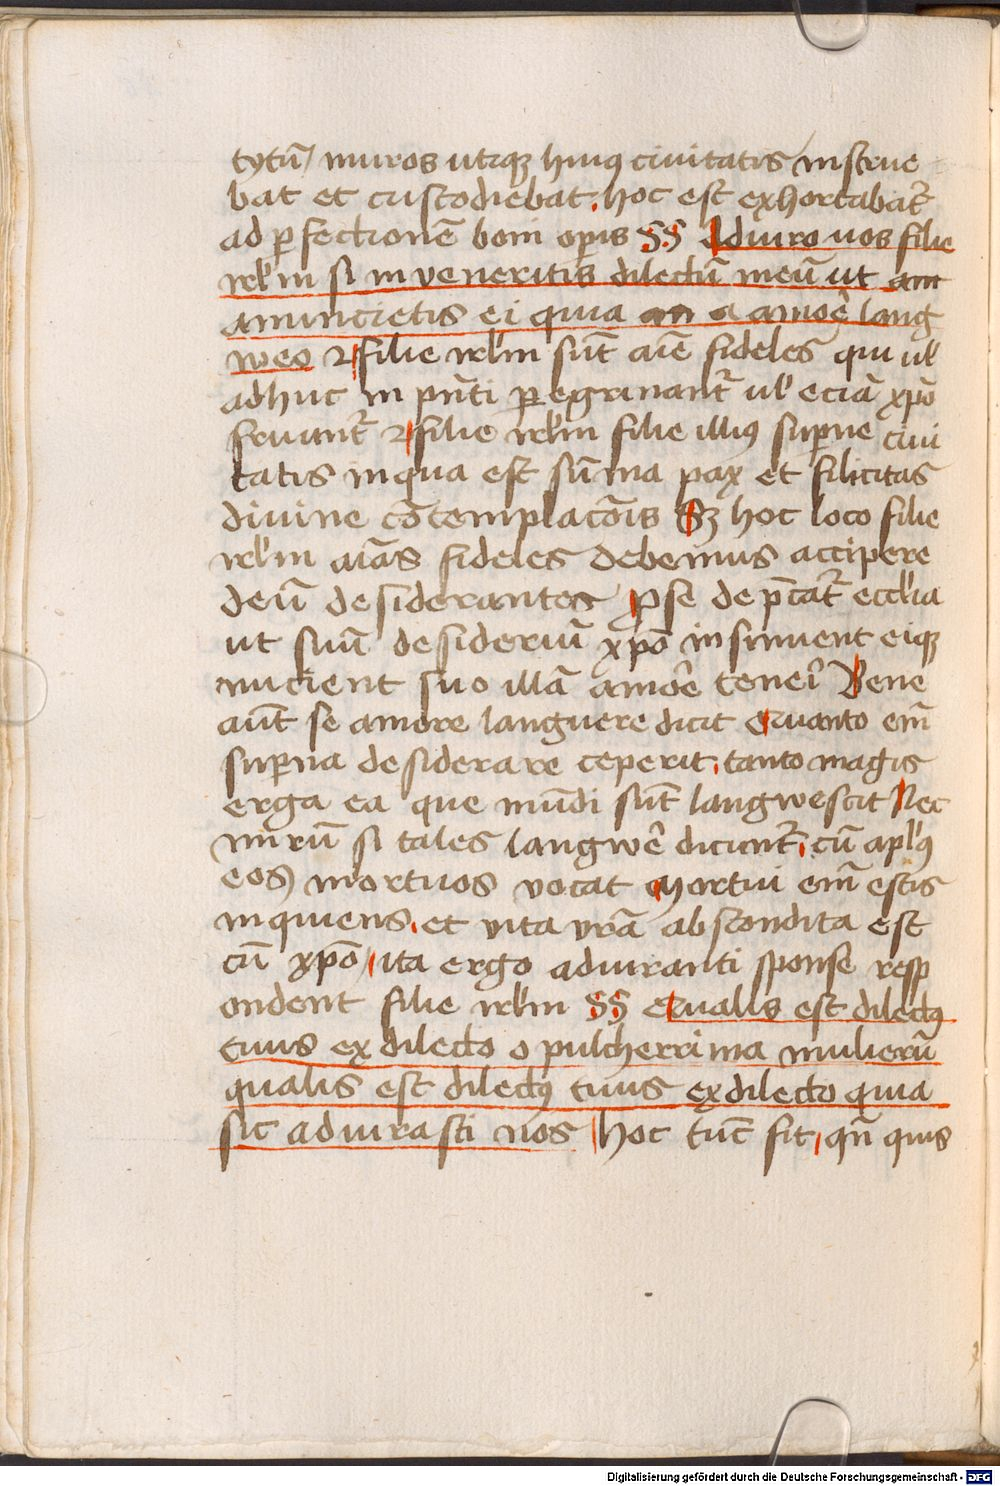 tytū / muros utiqꝫ huiꝰ ciuitatis instrue
bat et custodiebat . hoc est exhortabat᷑
ad ꝑfectionē boni oꝑis §§ Adiuro uos filie
irl'm si inveneritis dilectū meū ut ann
anuncietis ei quia an a amoē lang
weo ꝛ filie irl'm sūt aīe fideles qui ul'
adhuc in pn̄ti ꝑegrinant᷑ ul' eciā xp̄o
fruunt᷑ ꝛ filie irl'm filie illiꝰ suꝑne ciui
tatis in qua est sūma pax et filicitas
divine cōtemplacōis Sꝫ hoc loco filie
irl'm aīas fideles debemus accipere
deū desiderantes Pse dep̄cat᷑ eccl'ia
ut suū desideriū xp̄o insinuent eiqꝫ
nucient suo illā amoē teneī Bene
aūt se amore languere dicit Quanto em̄
suꝑna desiderare ceperit , tanto magis
erga ea que mūdi sūt langwescit Nec
mirū si tales langwē dicunt᷑ , cū apl'ꝰ
eos mortuos vocat Mortui em̄ estis
inquiens , et vita vr̄a abscondita est
cū xp̄o / ita ergo adiuranti sponse resp
ondent filie irl'm §§ Qualis est dilectꝰ
tuus ex dilecto o pulcherrima mulierū
qualis est dilectꝰ tuus ex dilecto quia
sic adiurasti nos hoc tūc fit , qn̄ quis
Digitalisierung gefördert durch die Deutsche Forschungsgemeinschaft - DFG